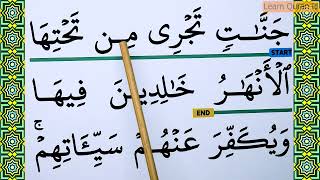 Learn Quran
جَنَّـٰتٍ تَجْرِى مِن تَحْتِهَا
START
ٱلْأَنْهَـٰرُ خَـٰلِدِينَ فِيهَا
END
وَيُكَفِّرَ عَنْهُمْ سَيِّـَٔاتِهِمْ ۚ